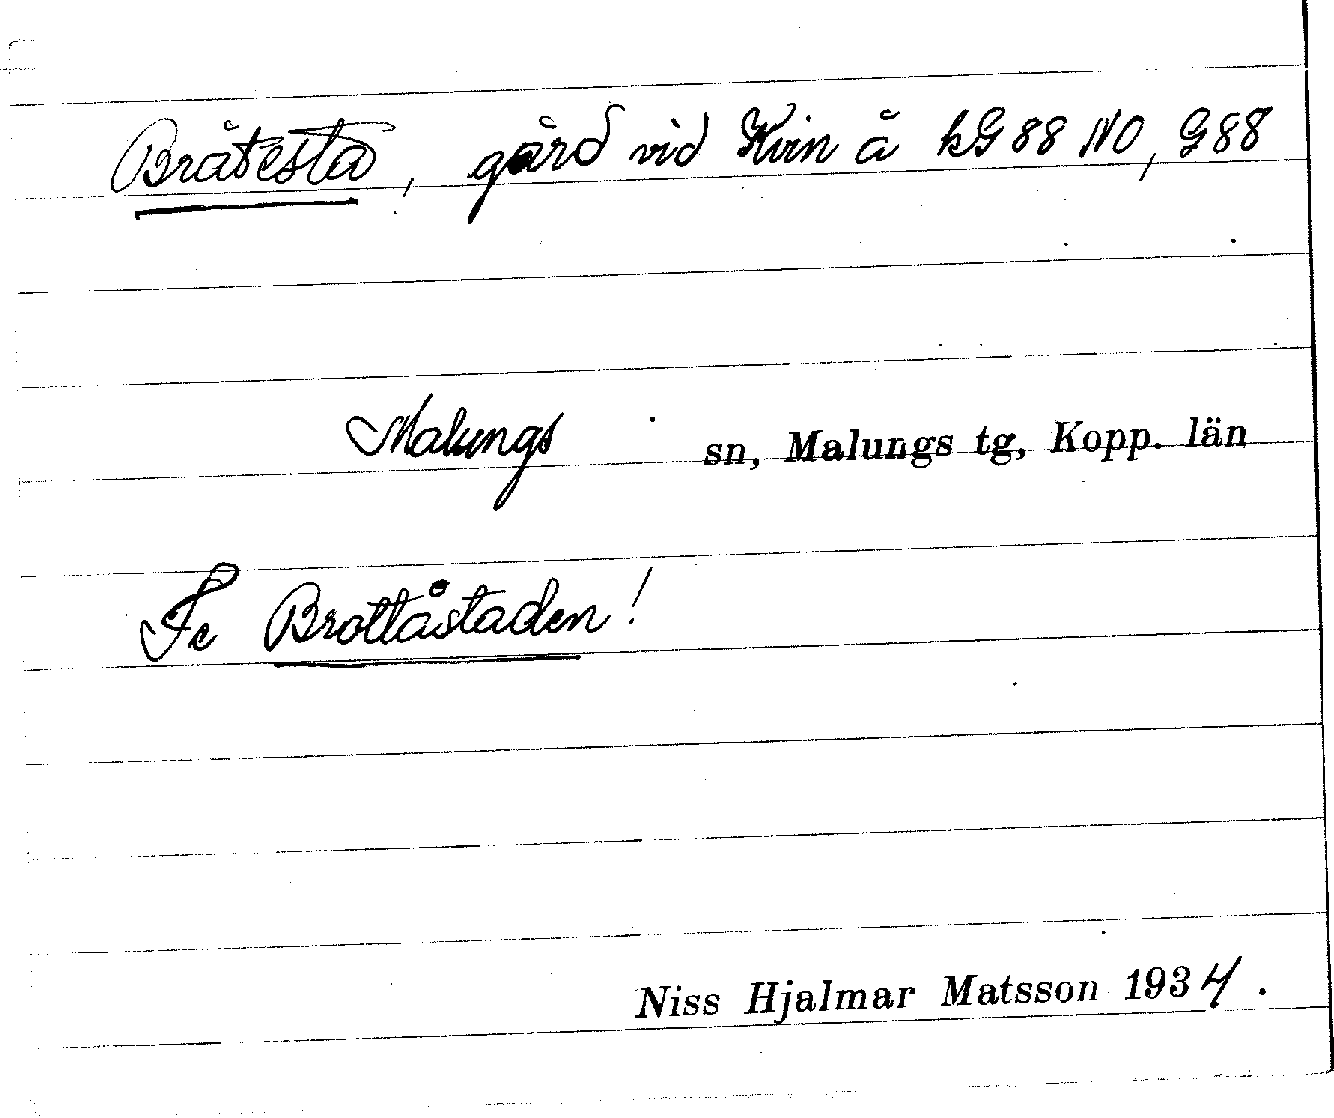 Bråtesta, gård vid Kvin å kG88 NO, G88
Malungs sn, Malungs tg, Kopp. län
Se Brottåstaden!
Niss Hjalmar Matsson 1934.